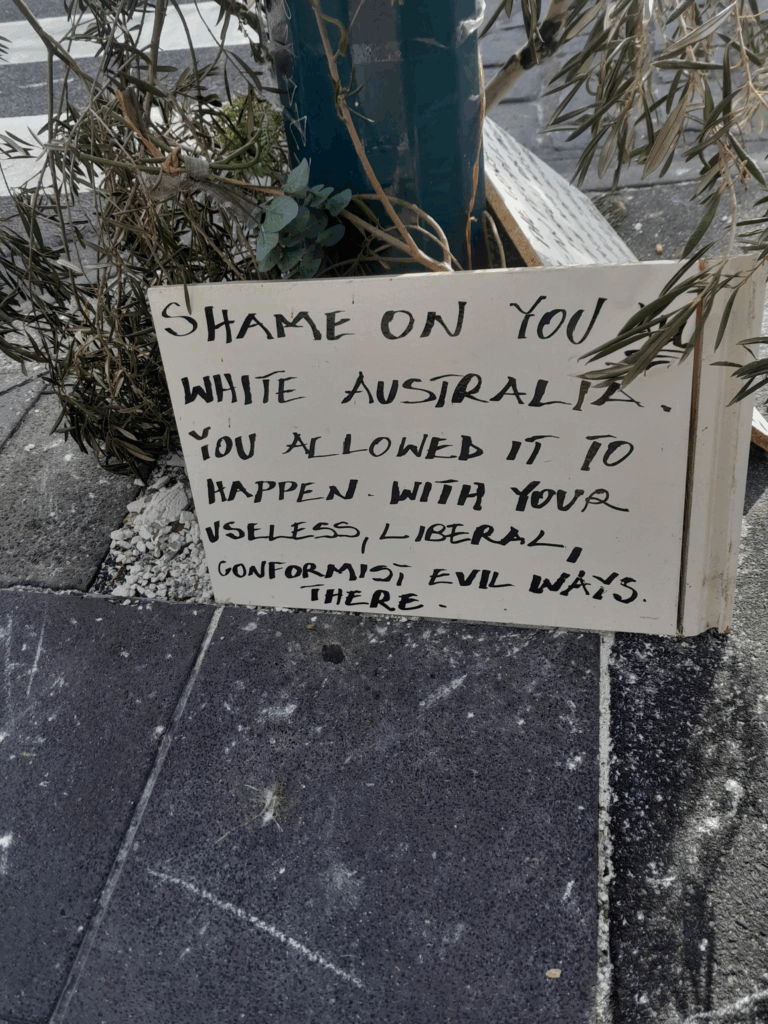 SHAME ON YOU
WHITE AUSTRALIA.
YOU ALLOWED IT TO
HAPPEN. WITH YOUR
USELESS, LIBERAL,
CONFORMIST EVIL WAYS.
THERE.